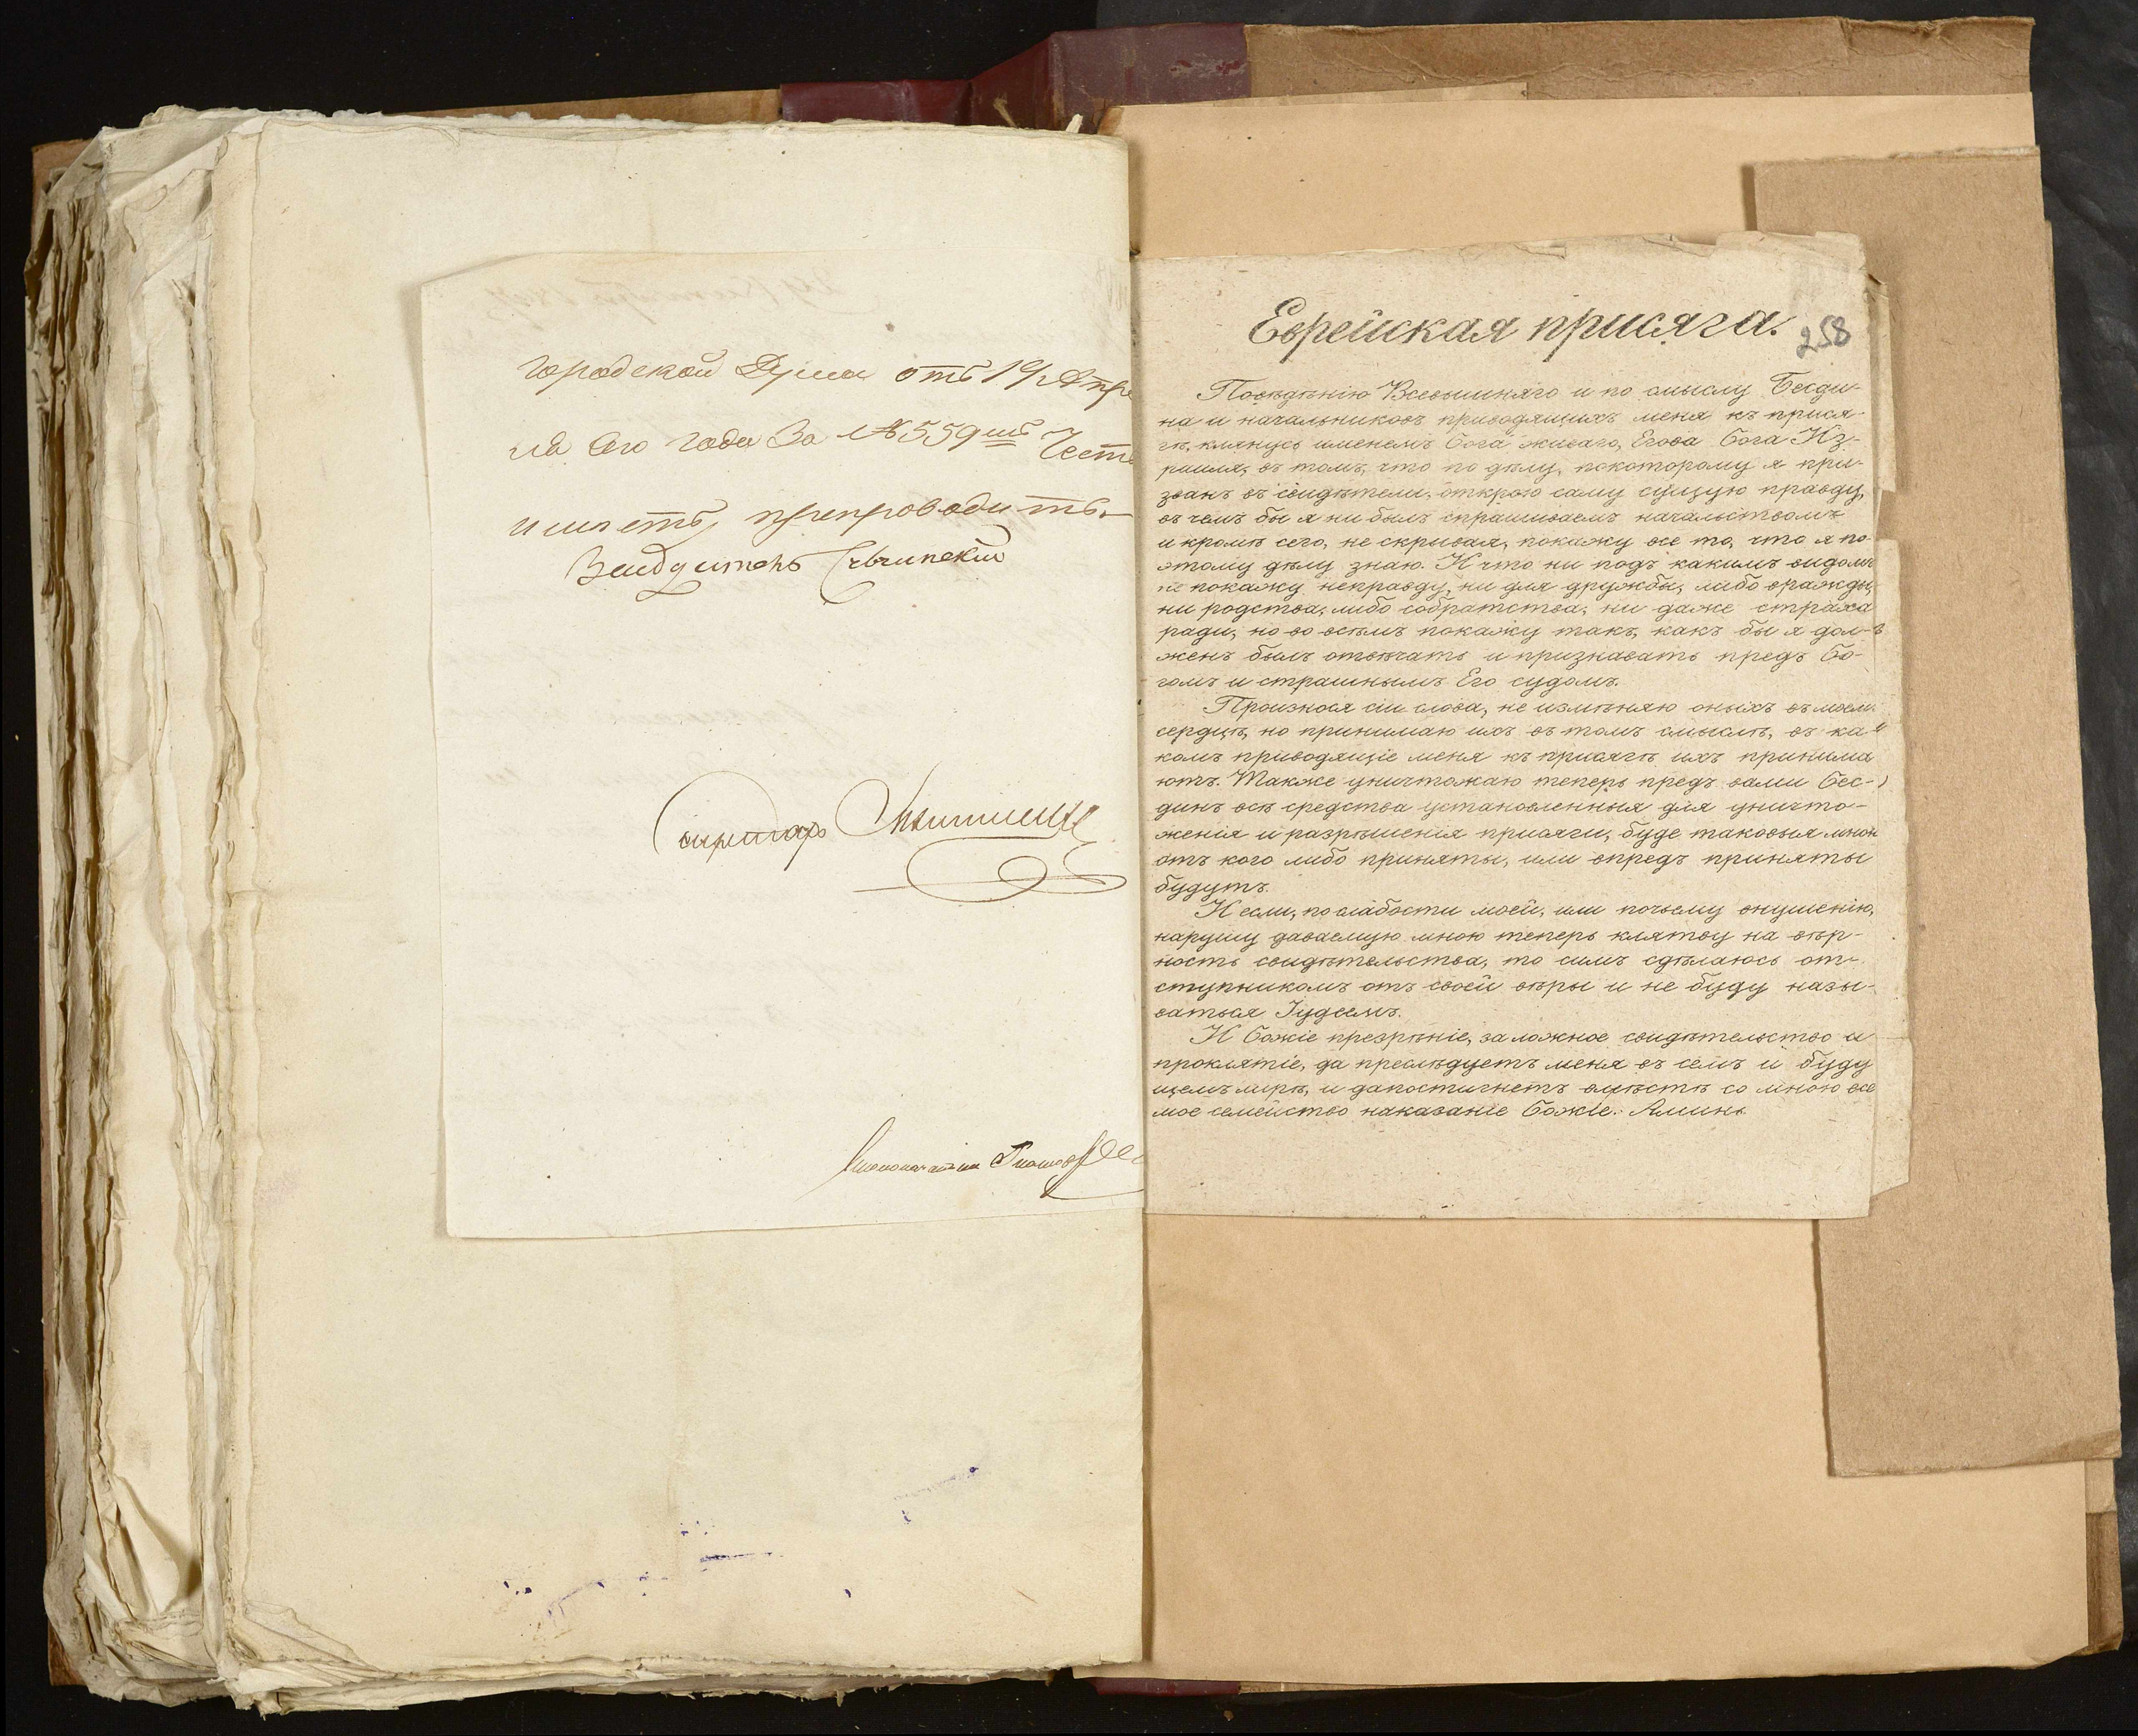 городской Думы отъ 19 Апре
ля сего года За №559мъ Честь
имѣетъ препроводить.
Секретарь
Еврейская присяга.
258
Повѣдѣнію Всевышняго и по смыслу Бесди-
на и начальниковъ приводящихъ меня къ прися-
гѣ, клянусь именемъ Бога живаго, Егова Бога Из-
раиля, въ томъ, что по дѣлу, покоторому я при-
званъ въ свидѣтели, открою саму сущую правду,
въ чемъ бы я ни былъ спрашиваемъ начальствомъ
и кромѣ сего, не скривая, покажу все то, что я по
этому дѣлу знаю. И что ни подъ какимъ видомъ
не покажу неправду, ни для дружбы, либо вражды,
ни родства, либо собратства, ни даже страха
ради, но во всѣмъ покажу такъ, какъ бы я дол-
женъ былъ отвѣчать и признавать предъ Бо-
гомъ и страшнымъ Его судомъ.
Произнося сіи слова, не измѣняю оныхъ въ моем
сердцѣ, но принимаю ихъ въ томъ смыслѣ, въ ка
комъ приводящіе меня къ присягѣ ихъ принима
ютъ. Также уничтожаю теперь предъ вами Бес-
динъ всѣ средства установленныя для уничто-
женія и разрѣшенія присяги, буде таковыя мною
отъ кого либо приняты, или впредъ приняты
будутъ.
И если, по слабости моей, или почьему внушенію,
нарушу даваемую мною теперь клятву на вѣр-
ность свидѣтельства, то симъ сдѣлаюсь от-
ступникомъ отъ своей вѣры и не буду назы-
ваться Іудеемъ.
И Божіе презрѣніе, за ложное свидѣтельство и
проклятіе, да преслѣдуетъ меня въ семъ и буду
щемъ мирѣ, и дапостигнетъ вмѣстѣ со мною все
мое семейство наказаніе Божіе. Аминь